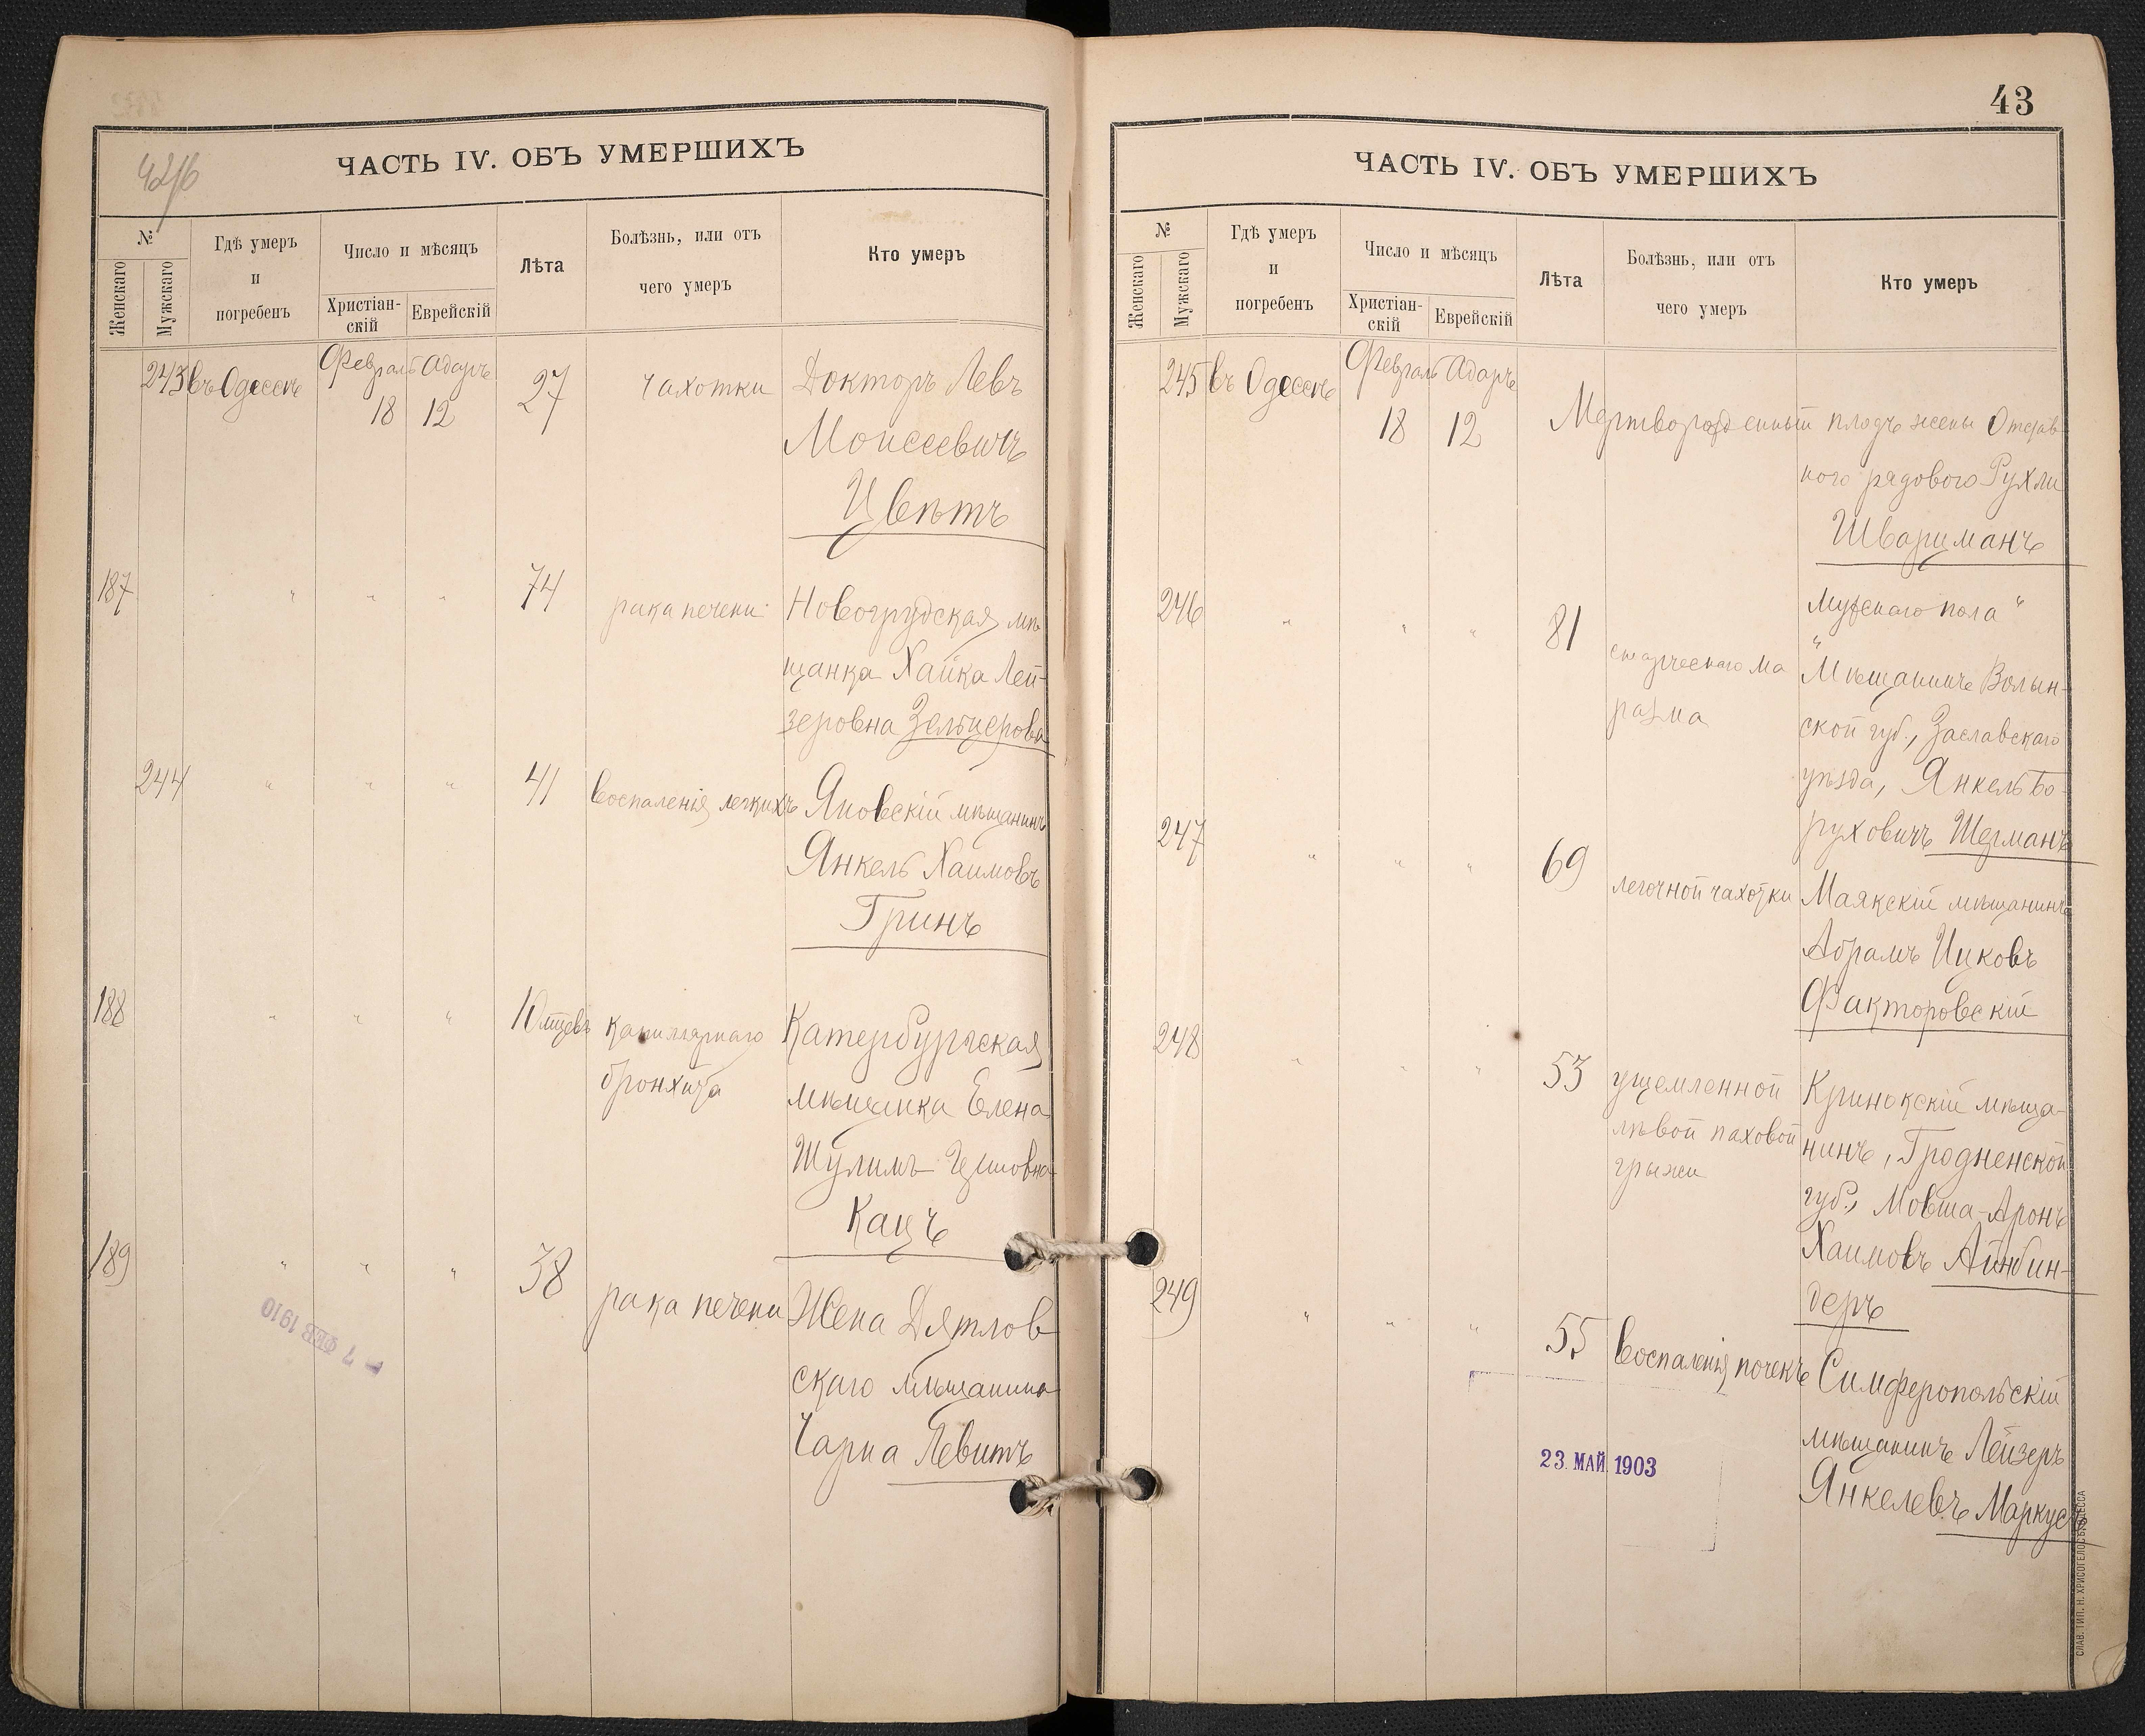 ЧАСТЬ IV. ОБЪ УМЕРШИХЪ
№
Женскаго
Мужскаго
Гдѣ умеръ
и
погребенъ
Число и мѣсяцъ
Христіан-
скій
Еврейскій
Лѣта
Болѣзнь, или отъ
чего умеръ
Кто умеръ
243 въ Одессѣ Февраль Адаръ 27 чахотки Докторъ Левъ
18 12 Моисеевичъ
Цвѣтъ
187 " " " 74 рака печени Новогрудская мѣ
щанка Хайка Лей-
зеровна Зельцерова
244 " " " 41 воспаленія легкихъ Яновскій мѣщанинъ
Янкель Хаимовъ
Гринъ
188 " " " 10 мцевъ капиллярнаго Катербургская
бронхита мѣщанка Елена
Шулимъ
Кацъ
189 " " " 38 рака печени Жена Дятлов
скаго мѣщанина
Чарна Левитъ
7 ФЕВ 1910
43
ЧАСТЬ IV. ОБЪ УМЕРШИХЪ
№
Женскаго
Мужскаго
Гдѣ умеръ
и
погребенъ
Число и мѣсяцъ
Христіан-
скій
Еврейскій
Лѣта
Болѣзнь, или отъ
чего умеръ
Кто умеръ
245 въ Одессѣ Февраль Адаръ
18 12 Мертворожденный плодъ жены Отстав
ного рядового Рухли
Шварцманъ
Мужскаго пола "
246 " " " 81 старческаго ма "Мѣщанинъ Волын-
разма ской губ., Заславскаго
уѣзда, Янкель Бо-
руховичъ Шерманъ
247 " " " 69 легочной чахотки Маякскій мѣщанинъ
Абрамъ Ицковъ
Факторовскій
248 " " " 53 ущемленной Кринокскій мѣща-
лѣвой паховой нинъ, Гродненской
грыжи губ., Мовша-Аронъ
Хаимовъ Айнбин-
деръ
249 " " " 55 воспаленія почекъ Симферопольскій
мѣщанинъ Лейзеръ
Янкелевъ Маркусъ
23 МАЙ 1903
СЛАВ. ТИП. Н. ХРИСОГЕЛОСЪ ОДЕССА